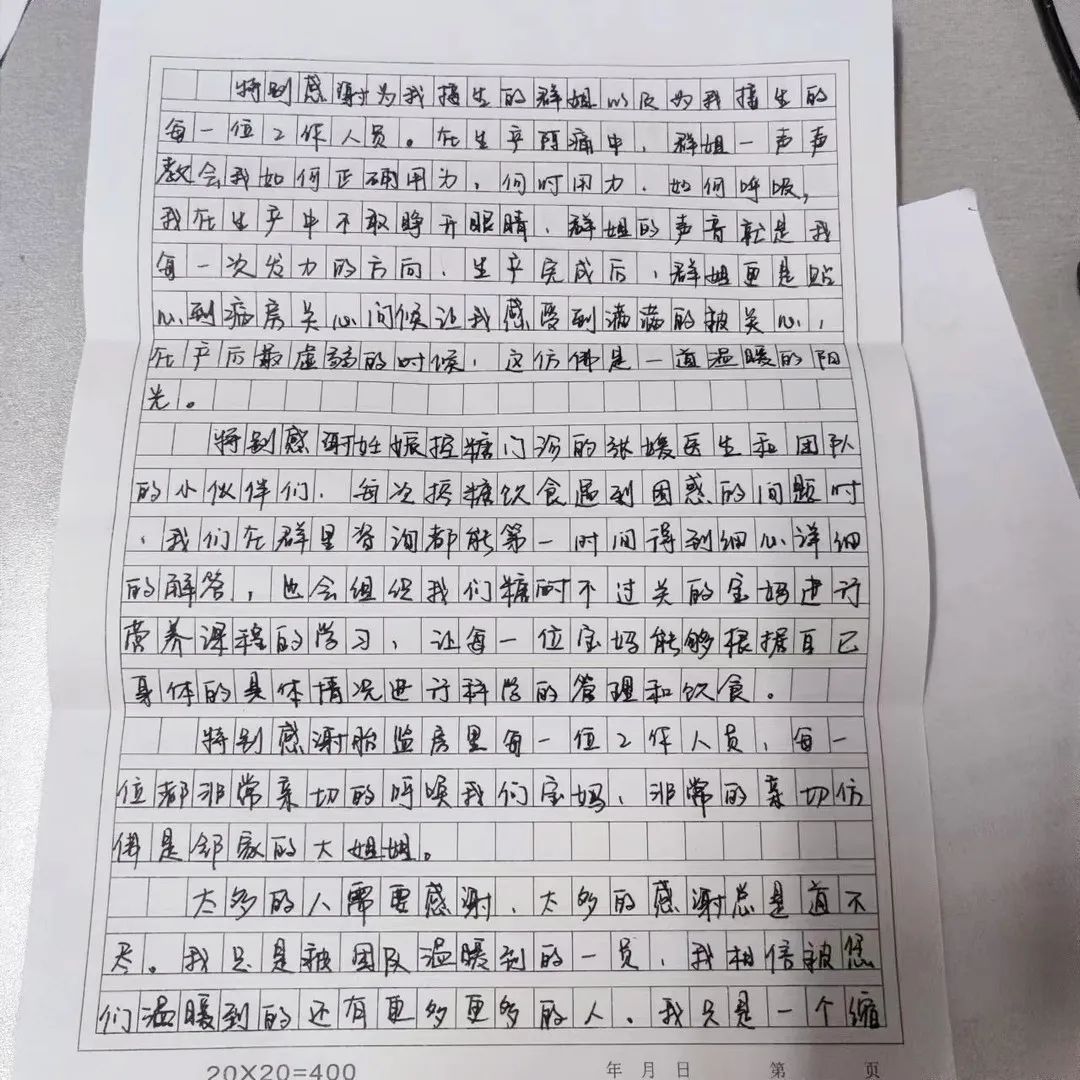 特别感谢为我接生的群姐以及为我接生的
每一位工作人员。在生产阵痛中,群姐一声声
教会我如何正确用力,何时用力,如何呼吸,
我在生产中不敢睁开眼睛,群姐的声音就是我
每一次发力的方向,生产完成后,群姐更是贴
心到病房关心问候让我感受到满满的被关心,
在产后最虚弱的时候,这仿佛是一道温暖的阳
光。
特别感谢妊娠控糖门诊的张媛医生和团队
的小伙伴们,每次控糖饮食遇到困惑的问题时
,我们在群里咨询都能第一时间得到细心详细
的解答,也会组织我们糖耐不过关的宝妈进行
营养课程的学习,让每一位宝妈能够根据自己
身体的具体情况进行科学的管理和饮食。
特别感谢胎监房里每一位工作人员,每一
位都非常亲切的呼唤我们宝妈,非常的亲切仿
佛是邻家的大姐姐。
太多的人需要感谢,太多的感谢总是道不
尽。我只是被团队温暖到的一员,我相信被您
们温暖到的还有更多更多的人。我只是一个缩
20X20=400
年 月 日 第 页